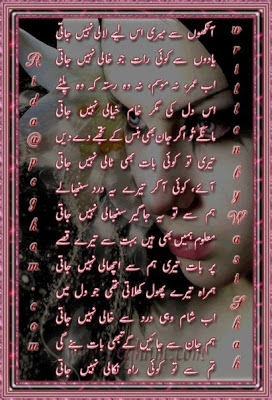 آنکھوں سے میری اس لیے لالی نہیں جاتی
یادوں سے کوئی رات جو خالی نہیں جاتی
اب عمر نہ موسم، نہ وہ رستہ کہ وہ پلٹے
اس دل کی مگر خام خیالی نہیں جاتی
مانگے تو اگر جان بھی ہنس کے تجھے دے دیں
تیری تو کوئی بات بھی ٹالی نہیں جاتی
آئے کوئی آ کر تیرے یہ درد سنبھالے
ہم سے تو یہ جاگیر سنبھالی نہیں جاتی
معلوم ہمیں بھی ہیں بہت سے تیرے قصے
پر بات تیری ہم سے اچھالی نہیں جاتی
ہمراہ تیرے پھول کھلاتی تھی جو دل میں
اب شام وہی درد سے خالی نہیں جاتی
ہم جان سے جائیں گے تبھی بات بنے گی
تم سے تو کوئی راہ نکالی نہیں جاتی
written by Wasi Shah
Rida@pegham.com